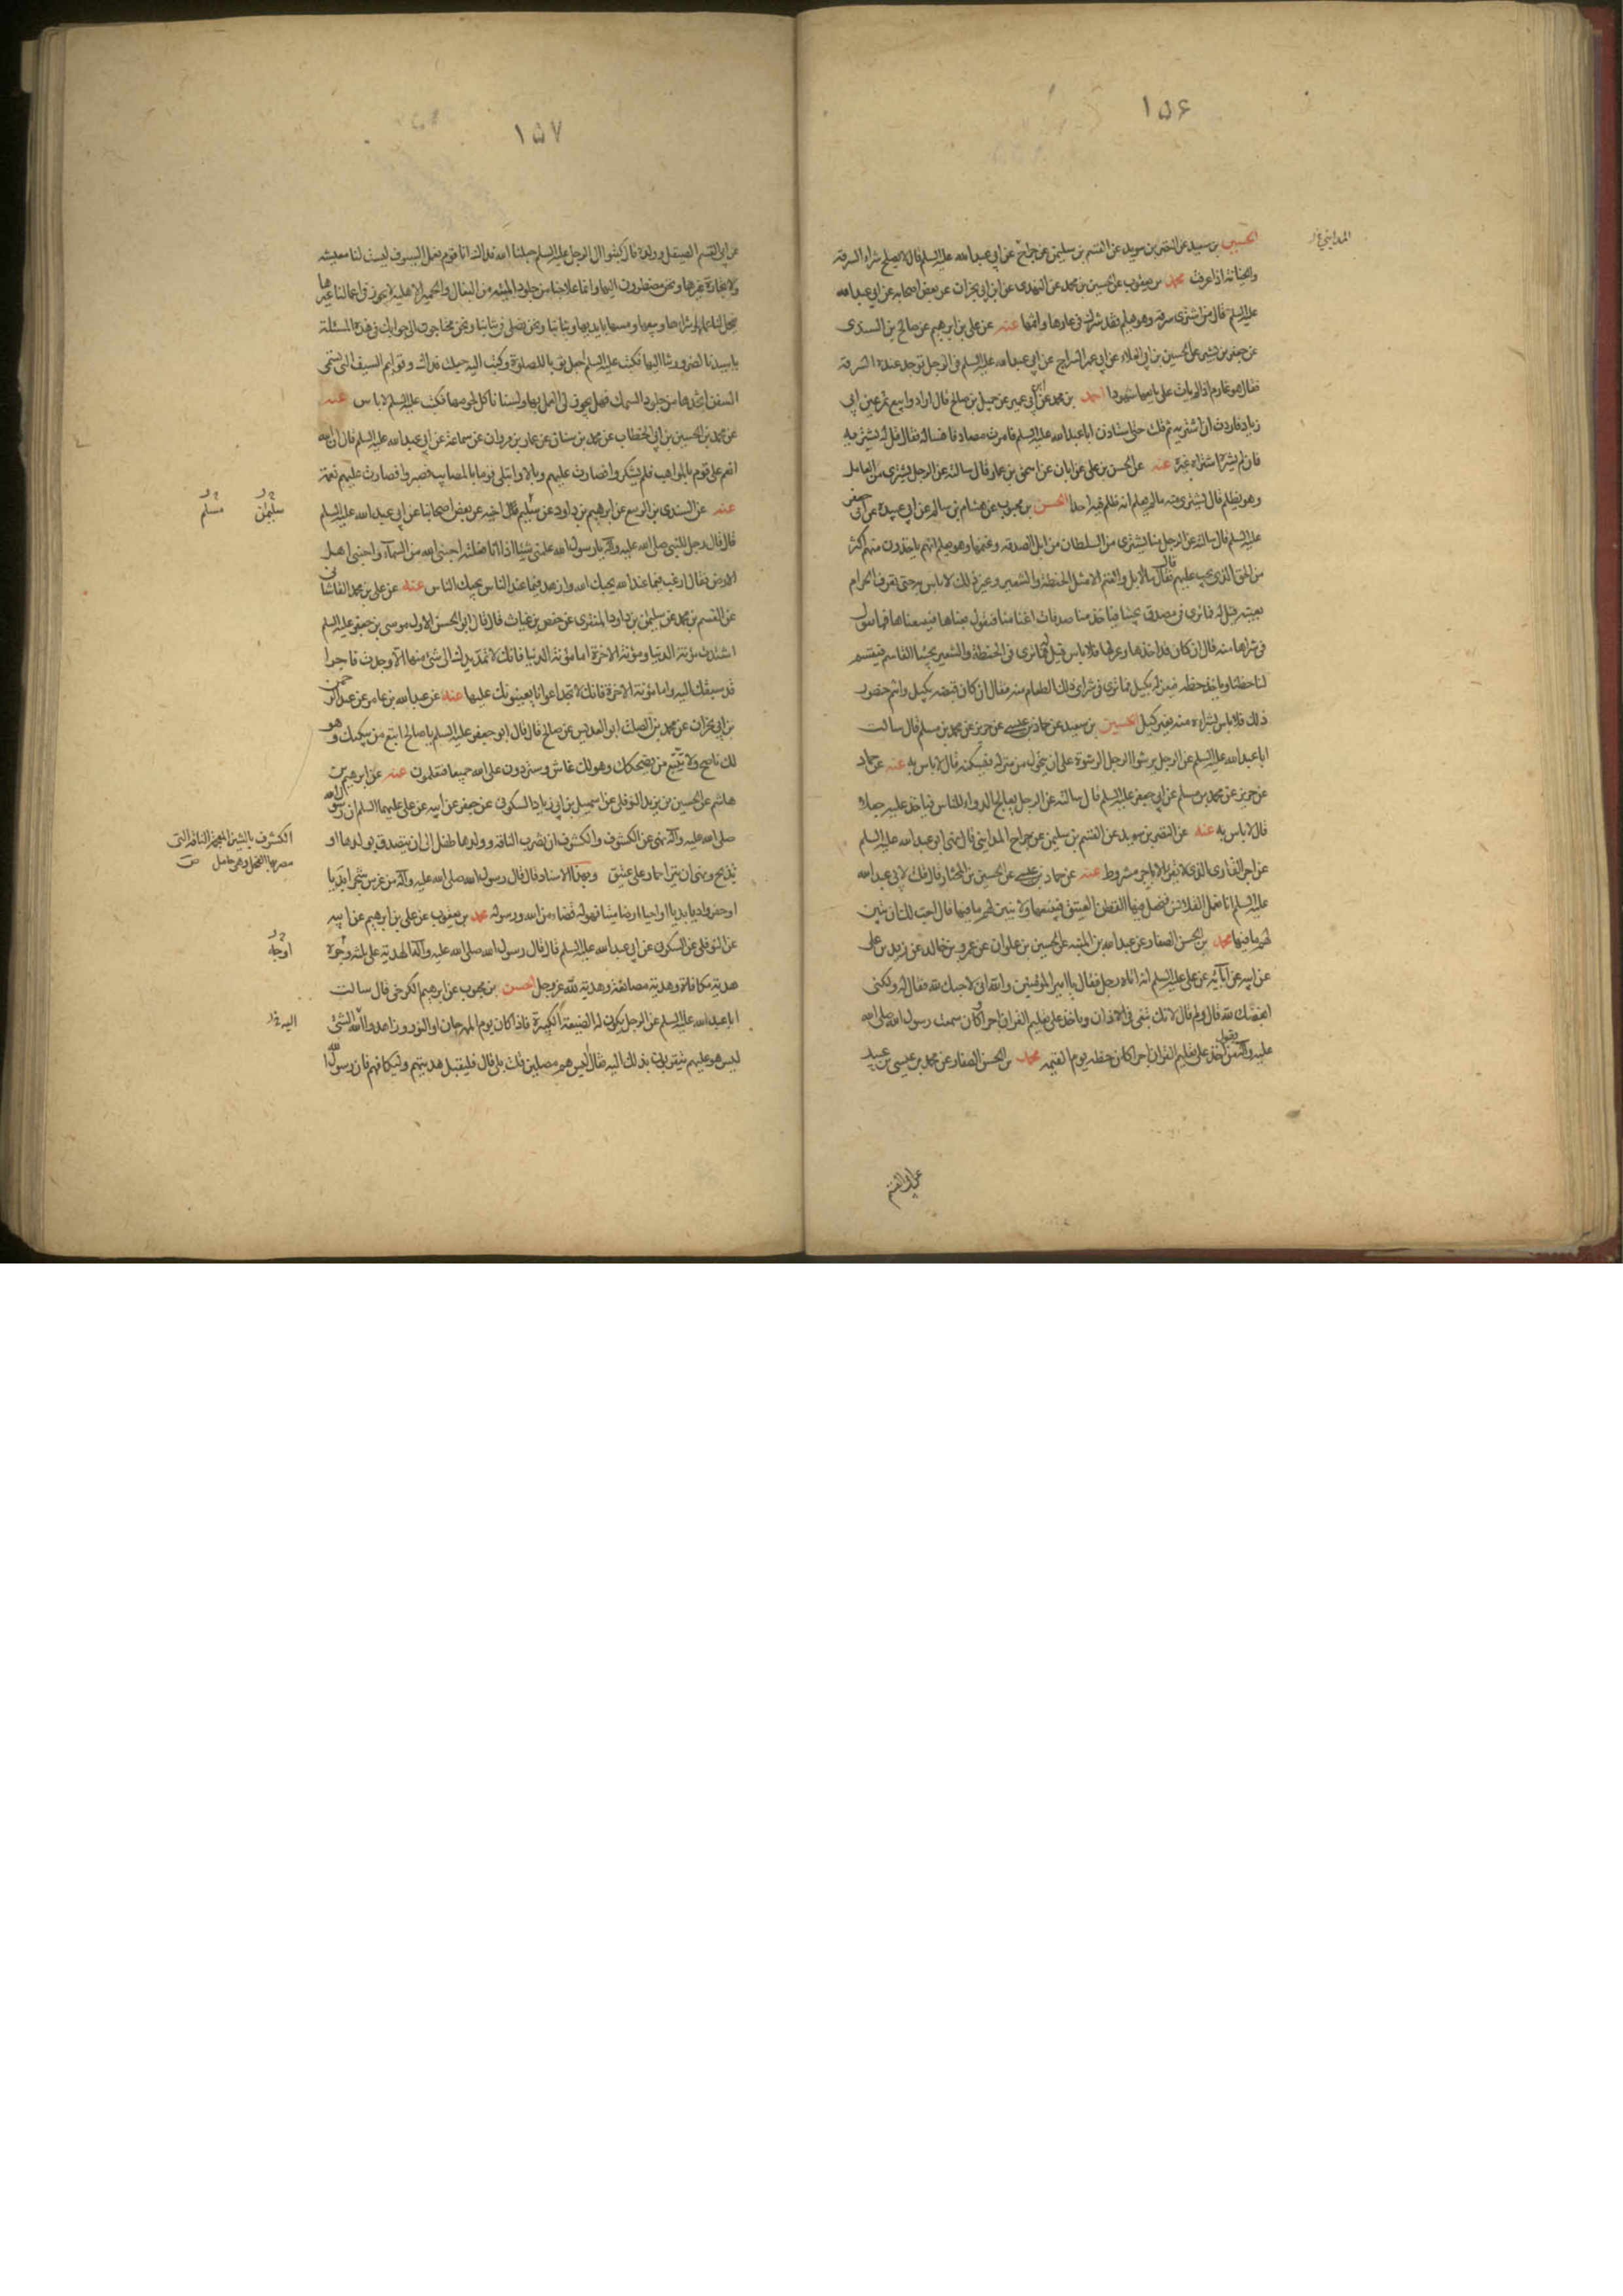 ١٥٦
المدايني خ ر
الحسين بن سعيد عن النضر بن سويد عن القسم بن سليمن عن جراح عن ابي عبد الله عليه السلم قال لا يصلح شراء السرقة
والخيانة اذا عرفت محمد بن يعقوب عن الحسين بن محمد عن النهدي عن ابن ابي نجران عن بعض اصحابه عن ابي عبد الله
عليه السلم قال من اشترى سرقة وهو يعلم فقد شرك في عارها واثمها عنه عن علي بن ابرهيم عن صالح بن السندي
عن جعفر بن بشير عن الحسين بن ابي العلاء عن ابي عمر السراج عن ابي عبد الله عليه السلم في الرجل توجد عنده السرقة
فقال هو غارم اذا لم يات على بايعها شهودا احمد بن محمد عن ابن ابي عمير عن جميل بن صالح قال ارادوا بيع تمر عين ابي
زياد فاردت ان اشتريه ثم قلت حتى استاذن ابا عبد الله عليه السلم فامرت مصادفا فساله فقال قل له يشتريه
فان لم يشتره اشتراه غيره عنه عن الحسن بن علي عن ابان عن اسحق بن عمار قال سالته عن الرجل يشتري من العامل
وهو يظلم قال يشتري منه ما لم يعلم انه ظلم فيه احدا الحسن بن محبوب عن هشام بن سالم عن ابي عبيدة عن ابي جعفر
عليه السلم قال سالته عن الرجل منا يشتري من السلطان من ابل الصدقة وغنمها وهو يعلم انهم ياخذون منهم اكثر
من الحق الذي يجب عليهم قال فقال ما الابل والغنم الا مثل الحنطة والشعير وغير ذلك لا باس به حتى تعرف الحرام
بعينه قيل له فما ترى في مصدق يجيئنا فياخذ منا صدقات اغنامنا فنقول بعناها فيبيعناها فما تقول
في شراها منه قال ان كان قد اخذها وعزلها فلا باس قيل له فما ترى في الحنطة والشعير يجيئنا القاسم فيقسم
لنا حظنا وياخذ حظه فيعزله بكيل فما ترى في شراى ذلك الطعام منه فقال ان كان قبضه بكيل وانتم حضور
ذلك فلا باس بشراءه منه بغير كيل الحسين بن سعيد عن حماد بن عيسى عن حريز عن محمد بن مسلم قال سالت
ابا عبد الله عليه السلم عن الرجل يرشوا الرجل الرشوة على ان يتحول من منزله فيسكنه قال لا باس به عنه عن حماد
عن حريز عن محمد بن مسلم عن ابي جعفر عليه السلم قال سالته عن الرجل يعالج الدواء للناس فياخذ عليه جعلا
قال لا باس به عنه عن النضر بن سويد عن القسم بن سليمن عن جراح المدايني قال نهى ابو عبد الله عليه السلم
عن اجر القاري الذي لا يقرا الا باجر مشروط عنه عن حماد بن عيسى عن الحسين بن المختار قال قلت لابي عبد الله
عليه السلم انا نعمل القلانس فنجعل فيها القطن العتيق فنبيعها ولا نبين لهم ما فيها قال احب لك ان تبين
لهم ما فيها محمد بن الحسن الصفار عن عبد الله بن المنبه عن الحسين بن علوان عن عمرو بن خالد عن زيد بن علي
عن ابيه عن ابائه عن علي عليه السلم انه اتاه رجل فقال يا امير المؤمنين والله اني لاحبك لله فقال له ولكني
ابغضك لله قال ولم قال لانك تبغي في الاذان وتاخذ على تعليم القران اجرا وكان سمعت رسول الله صلى الله
عليه واله يقول من اخذ على تعليم القران اجرا كان حظه يوم القيمة محمد بن الحسن الصفار عن محمد بن عيسى بن عبيد
عن ابي القسم
١٥٧
عن ابي القسم الصيقل وولده قال كتبوا الى الرجل عليه السلم جعلنا الله فداك انا قوم نعمل السيوف ليست لنا معيشة
ولا تجارة غيرها ونحن مضطرون اليها وانما علاجنا من جلود الميتة من البغال والحمير الاهلية لا يجوز في اعمالنا غيرها
فيحل لنا عملها وشراءها وبيعها ومسها بايدينا وثيابنا ونحن نصلي في ثيابنا ونحن محتاجون الى جوابك في هذه المسئلة
يا سيدنا لضرورتنا اليها فكتب عليه السلم اجعل ثوبا للصلوة وكتبت اليه جعلت فداك وقوايم السيف التي تسمى
السفن اتخذها من جلود السمك فهل يجوز لي العمل بها ولسنا ناكل لحومها فكتب عليه السلم لا باس عنه
عن محمد بن الحسين بن ابي الخطاب عن محمد بن سنان عن عمار بن مروان عن سماعة عن ابي عبد الله عليه السلم قال ان الله
انعم على قوم بالمواهب فلم يشكروا فصارت عليهم وبالا وابتلى قوما بالمصايب فصبروا فصارت عليهم نعمة
عنه عن السندي بن الربيع عن ابرهيم بن داود عن سليم قال اخيه عن بعض اصحابنا عن ابي عبد الله عليه السلم
سليمن
مسلم
قال قال رجل للنبي صلى الله عليه واله يا رسول الله علمني شيئا اذا انا فعلته احبني الله من السماء واحبني اهل
الارض فقال ارغب فيما عند الله يحبك الله وازهد فيما عند الناس يحبك الناس عنه عن علي بن محمد القاشاني
عن القسم بن محمد عن سليمن بن داود المنقري عن حفص بن غياث قال قال ابو الحسن الاول موسى بن جعفر عليه السلم
اشتدت مؤنة الدنيا ومؤنة الاخرة اما مؤنة الدنيا فانك لا تمد يدك الى شئ منها الا وجدت فاجرا
قد سبقك اليه واما مؤنة الاخرة فانك لا تجد اعوانا يعينونك عليها عنه عن عبد الله بن عامر عن عبد الرحمن
بن ابي نجران عن محمد بن الصلت ابو العديس عن صالح قال قال ابو جعفر عليه السلم يا صالح اتبع من يبكيك وهو
لك ناصح ولا تتبع من يضحكك وهو لك غاش وستردون على الله جميعا فتعلمون عنه عن ابرهيم بن
هاشم عن الحسين بن يزيد النوفلي عن اسمعيل بن ابي زياد السكوني عن جعفر عن ابيه عن علي عليهما السلم ان رسول الله
صلى الله عليه واله نهى عن الكشوف والكشوف ان تضرب الناقة وولدها طفل الى ان يتصدق بولدها او
الكشوف بالشين المعجمة الناقة التي
يضربها الفحل وهي حامل ص
يذبح ونهى ان ينزا حمار على عتيق وبهذا الاسناد قال قال رسول الله صلى الله عليه واله من غرس شجرا بديا
او حفر واديا بديا او احيا ارضا ميتا فهو له قضاء من الله ورسوله محمد بن يعقوب عن علي بن ابرهيم عن ابيه
عن النوفلي عن السكوني عن ابي عبد الله عليه السلم قال قال رسول الله صلى الله عليه واله الهدية على ثلثة وجوه
اوجه
هدية مكافاة وهدية مصانعة وهدية لله عز وجل الحسن بن محبوب عن ابرهيم الكرخي قال سالت
ابا عبد الله عليه السلم عن الرجل يكون له الضيعة الكبيرة فاذا كان يوم المهرجان او النوروز اهدوا له الشئ
اليه خ ر
ليس هو عليهم يتقربون بذلك اليه فقال اليس هم مصلين قلت بلى قال فليقبل هديتهم وليكافهم فان رسول الله